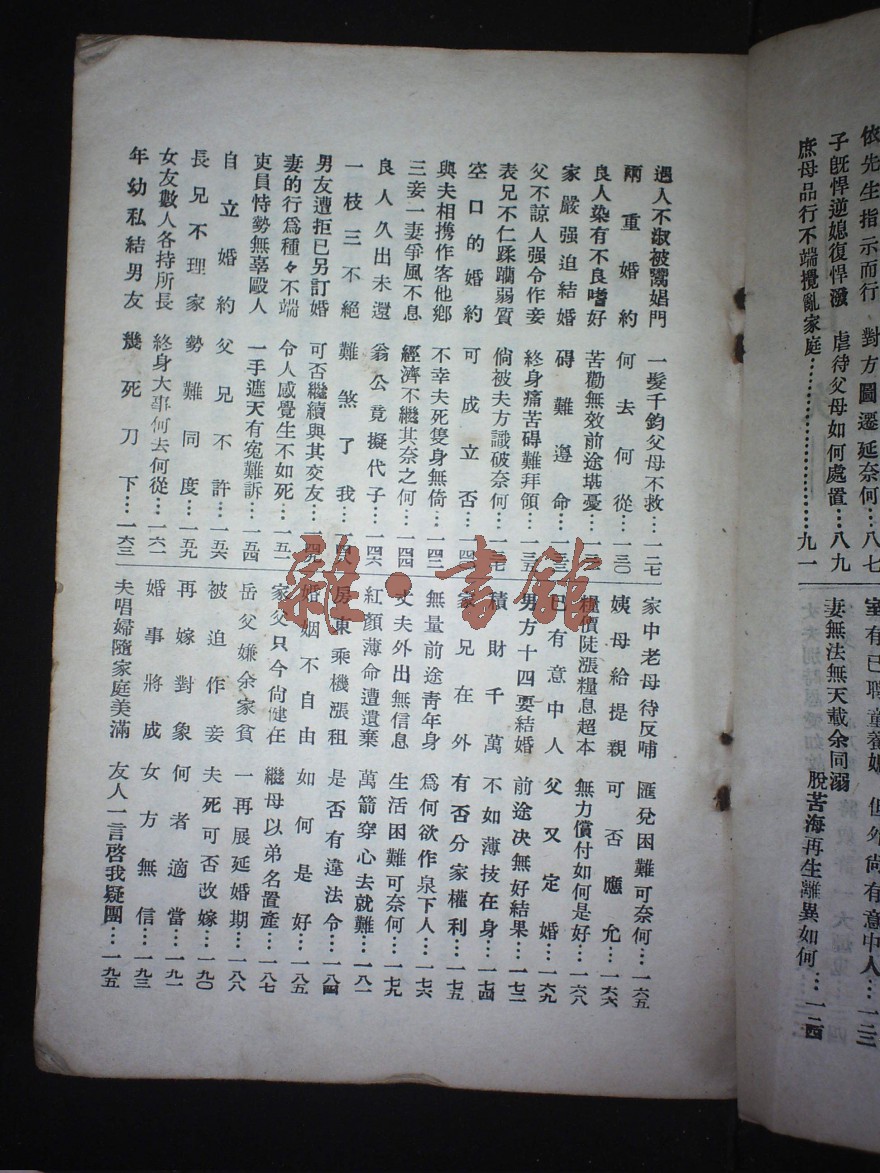 依先生指示而行　對方圖遷延奈何…八七
子既悍逆媳復悍潑　虐待父母如何處置…八九
庶母品行不端攪亂家庭………………九一
室有已聘童養媳　但外尚有意中人…一二三
妻無法無天載余同溺　脫苦海再生離異如何…一二四
遇人不淑被鬻娼門　一髮千鈞父母不救…一二七
兩重婚約　何去何從…一三〇
良人染有不良嗜好　苦勸無效前途堪憂…一三一
家嚴强迫結婚　碍難遵命…一三三
父不諒人强令作妾　終身痛苦碍難拜領…一三五
表兄不仁蹂躪弱質　倘被夫方識破奈何…一三七
空口的婚約　可成立否…一四〇
與夫相携作客他鄉　不幸夫死隻身無倚…一四三
三妾一妻爭風不息　經濟不繼其奈之何…一四四
良人久出未還　翁公竟擬代子…一四六
一枝三不絕　難煞了我…一四八
男友遭拒已另訂婚　可否繼續與其交友…一四九
妻的行爲種々不端　令人感覺生不如死…一五一
吏員恃勢無辜毆人　一手遮天有冤難訴…一五四
自立婚約　父兄不許…一五六
長兄不理家　勢難同度…一五九
女友數人各持所長　終身大事何去何從…一六一
年幼私結男友　幾死刀下…一六三
家中老母待反哺　匯兌困難可奈何…一六五
姨母給提親　可否應允…一六六
糧價陡漲糧息超本　無力償付如何是好…一六八
已有意中人　父又定婚…一六九
男方十四要結婚　前途决無好結果…一七二
積財千萬　不如薄技在身…一七四
家兄在外　有否分家權利…一七五
無量前途靑年身　爲何欲作泉下人…一七六
丈夫外出無信息　生活困難可奈何…一七九
紅顏薄命遭遺棄　萬箭穿心去就難…一八一
房東乘機漲租　是否有違法令…一八四
婚姻不自由　如何是好…一八五
家父只今尙健在　繼母以弟名置產…一八七
岳父嫌余家貧　一再展延婚期…一八八
被迫作妾　夫死可否改嫁…一九〇
再嫁對象　何者適當…一九一
婚事將成　女方無信…一九三
夫唱婦隨家庭美滿　友人一言啓我疑團…一九五
雜·書館